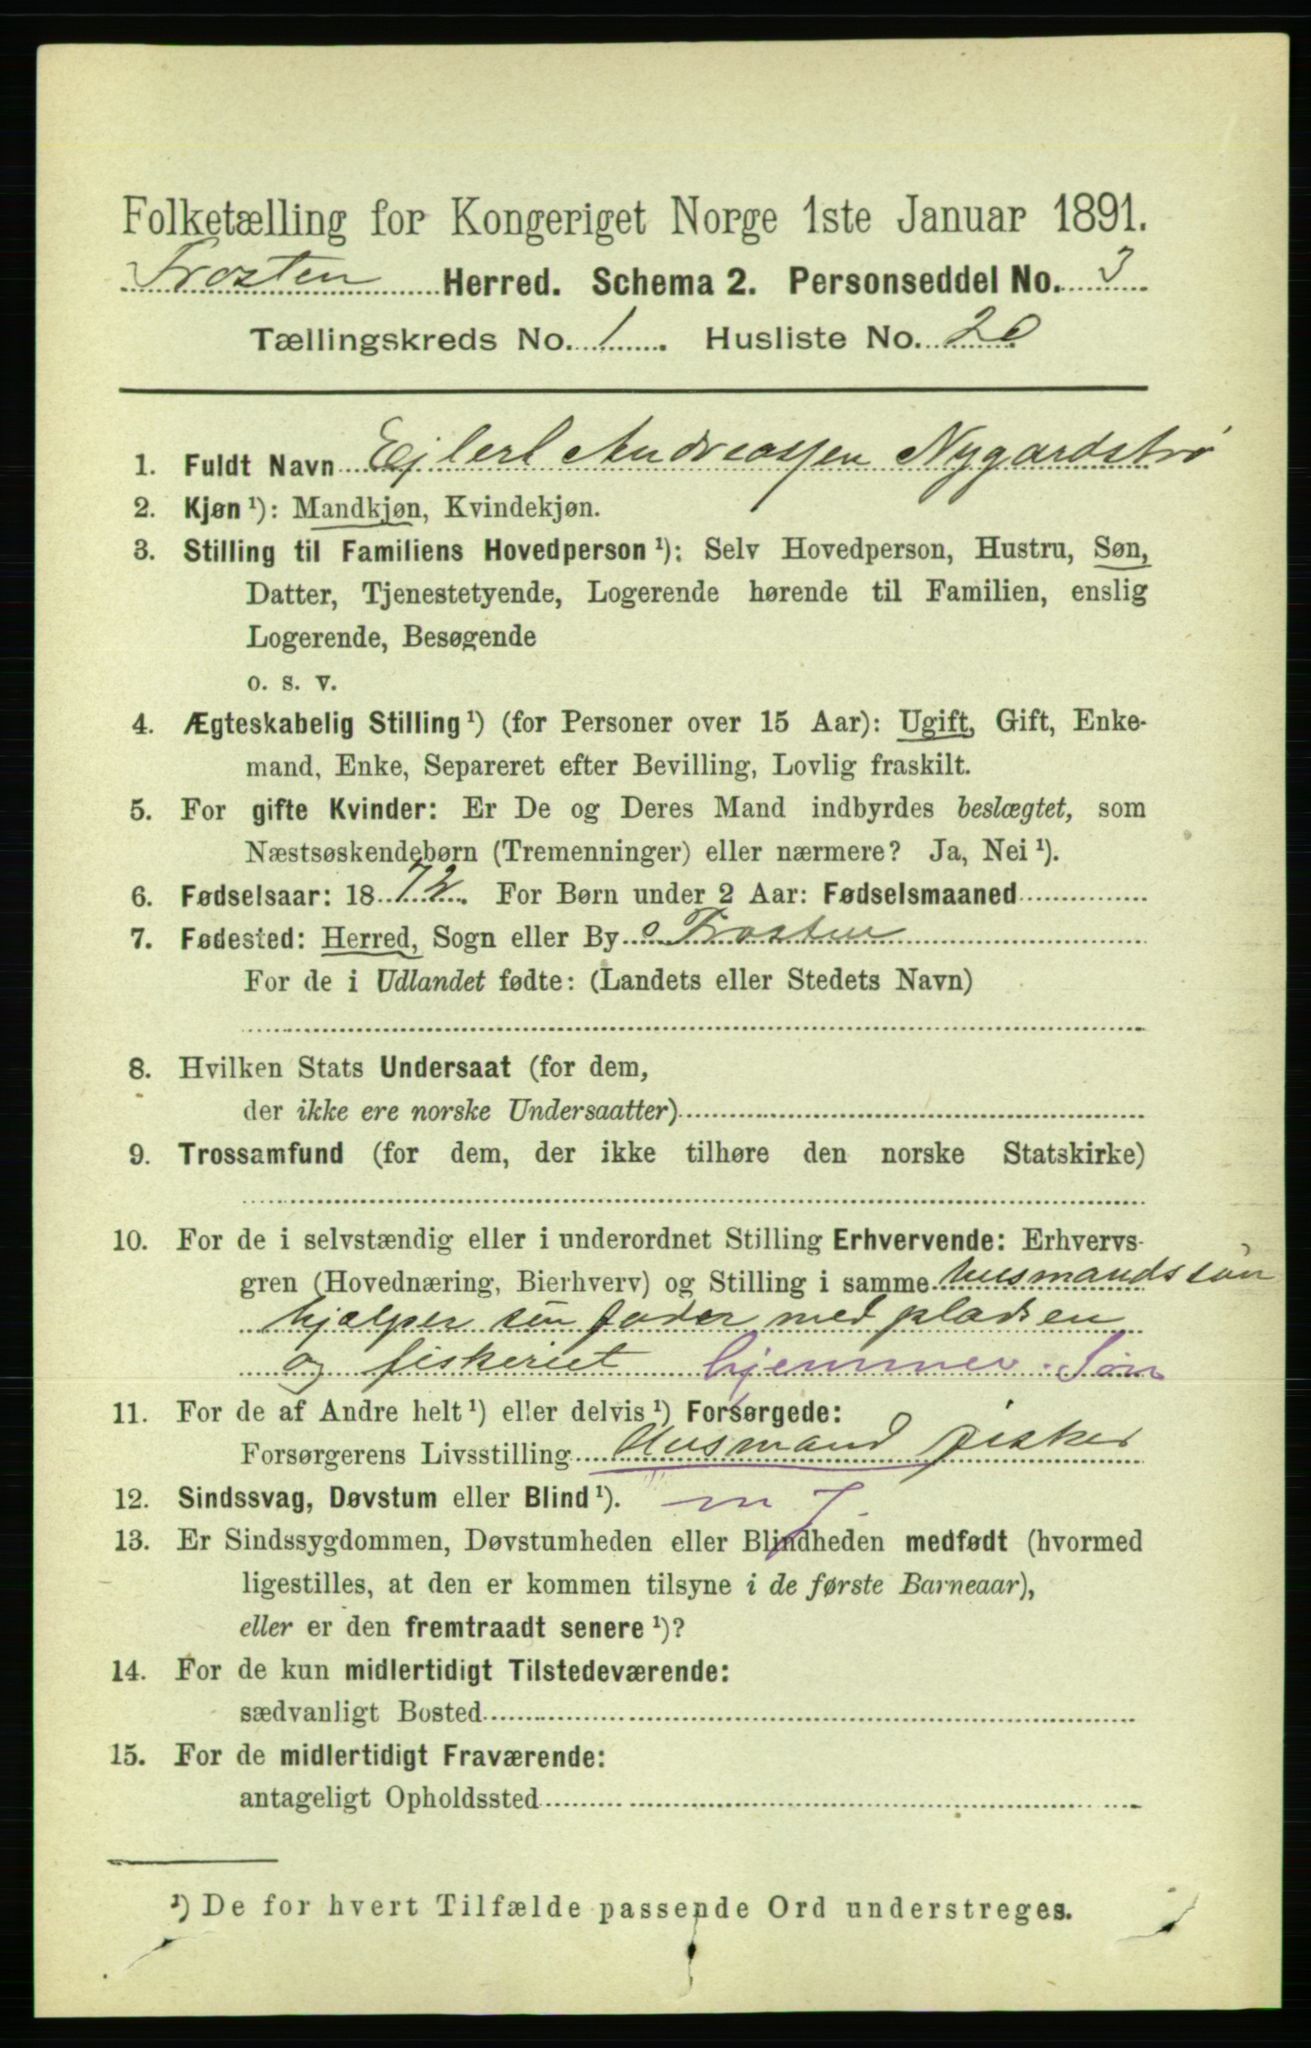 Folketælling for Kongeriget Norge 1ste Januar 1891.
Frosten Herred. Schema 2. Personseddel No. 3
Tællingskreds No. 1. Husliste No. 20
1. Fuldt Navn Ejlert Andreassen Nygardstrø
2. Kjøn ¹): Mandkjøn, Kvindekjøn.
3. Stilling til Familiens Hovedperson ¹): Selv Hovedperson, Hustru, Søn,
Datter, Tjenestetyende, Logerende hørende til Familien, enslig
Logerende, Besøgende
o. s. v.
4. Ægteskabelig Stilling ¹) (for Personer over 15 Aar): Ugift, Gift, Enke-
mand, Enke, Separeret efter Bevilling, Lovlig fraskilt.
5. For gifte Kvinder: Er De og Deres Mand indbyrdes beslægtet, som
Næstsøskendebørn (Tremenninger) eller nærmere? Ja, Nei ¹).
6. Fødselsaar: 18 72. For Børn under 2 Aar: Fødselsmaaned
7. Fødested: Herred, Sogn eller By Frosten
For de i Udlandet fødte: (Landets eller Stedets Navn)
8. Hvilken Stats Undersaat (for dem,
der ikke ere norske Undersaatter)
9. Trossamfund (for dem, der ikke tilhøre den norske Statskirke)
10. For de i selvstændig eller i underordnet Stilling Erhvervende: Erhvervs-
gren (Hovednæring, Bierhverv) og Stilling i samme husmands søn
hjælper sin fader med pladsen
og fiskeriet hjemmev. Søn
11. For de af Andre helt ¹) eller delvis ¹) Forsørgede:
Forsørgerens Livsstilling Husmand fisker
12. Sindssvag, Døvstum eller Blind ¹). m f
13. Er Sindssygdommen, Døvstumheden eller Blindheden medfødt (hvormed
ligestilles, at den er kommen tilsyne i de første Barneaar),
eller er den fremtraadt senere ¹)?
14. For de kun midlertidigt Tilstedeværende:
sædvanligt Bosted
15. For de midlertidigt Fraværende:
antageligt Opholdssted
¹) De for hvert Tilfælde passende Ord understreges.